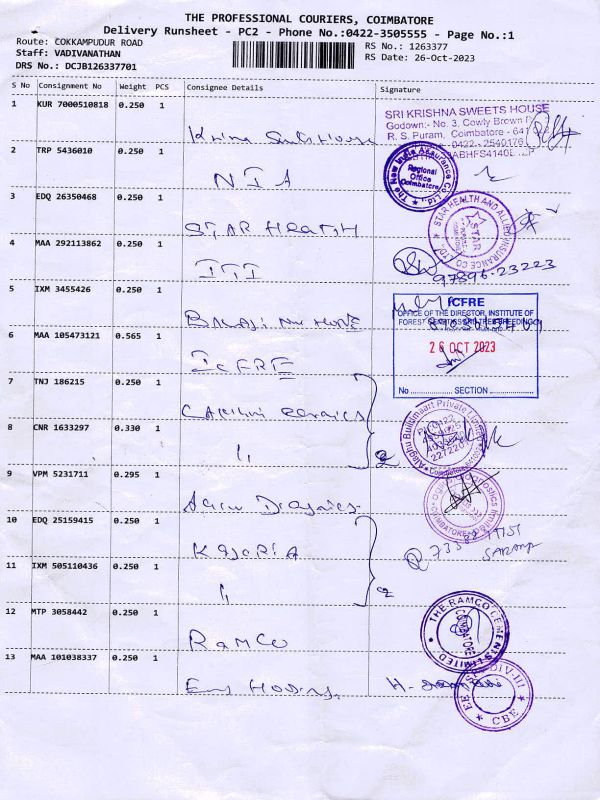 THE PROFESSIONAL COURIERS, COIMBATORE
Delivery Runsheet - PC2 - Phone No.:0422-3505555 - Page No.:1
Route: COKKAMPUDUR ROAD
Staff: VADIVANATHAN
DRS No.: DCJB126337701
RS No.: 1263377
RS Date: 26-Oct-2023
S No Consignment No Weight PCS Consignee Details Signature
1 KUR 7000510818 0.250 1
SRI KRISHNA SWEETS HOUSE
Godown:- No. 3, Cowly Brown
R. S. Puram, Coimbatore - 641
2 TRP 5436010 0.250 1 NIA
The New India Assurance Co. Ltd.,
Regional
Office
Coimbatore
3 EDQ 26350468 0.250 1 STAR HEALTH
STAR HEALTH AND ALLIED INSURANCE CO LTD.
STAR
4 MAA 292113862 0.250 1 ITI
97896-23223
5 IXM 3455426 0.250 1
ICFRE
OFFICE OF THE DIRECTOR, INSTITUTE OF
FOREST GENETICS AND TREE BREEDING
26 OCT 2023
No SECTION
6 MAA 105473121 0.565 1 IcFRE
7 TNJ 186215 0.250 1
Buildmaart Private Limited
8 CNR 1633297 0.330 1 "
2
Coimbatore
9 VPM 5231711 0.295 1
COIMBATORE
10 EDQ 25159415 0.250 1 KAJARIA
11 IXM 505110436 0.250 1 "
2
12 MTP 3058442 0.250 1 RAMCO
THE RAMCO CEMENTS LIMITED
COIMBATORE
13 MAA 101038337 0.250 1
DIV-III
CBE